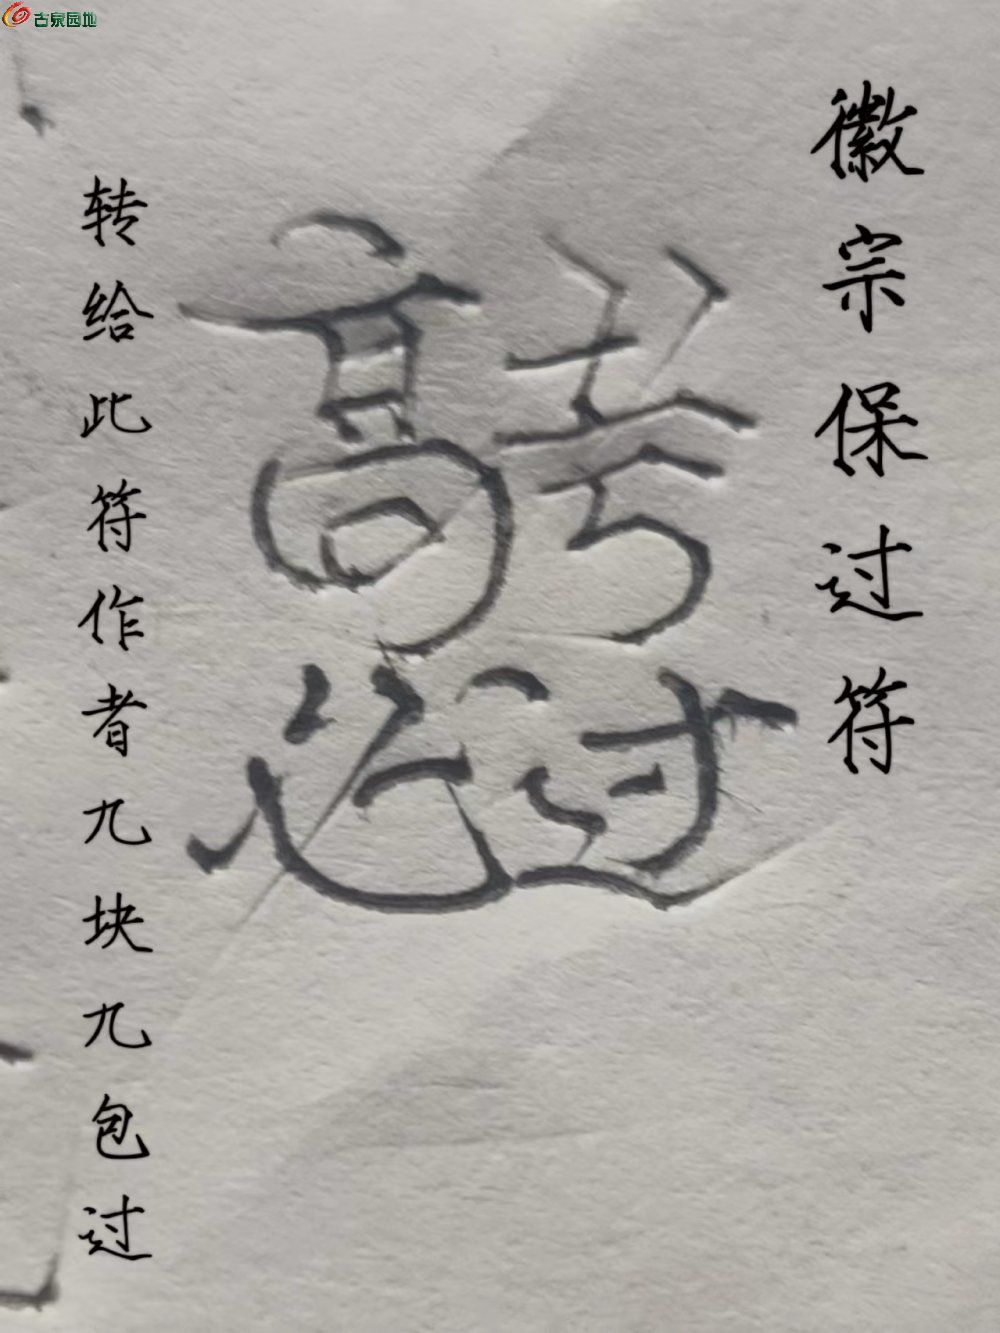 古泉园地
徽宗保过符
高考
必过
转给此符作者九块九包过